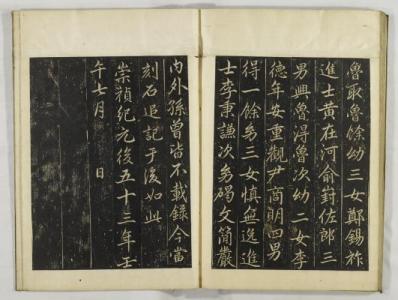 魯取魯餘幼三女鄭錫祚
進士黃在河俞崶佐郎三
男興魯得魯次幼二女李
德年安重觀尹商明四男
得一餘多三女慎無逸進
士李秉謙次多碣文簡嚴
內外孫曾皆不載錄今當
刻石追記于後如此
崇禎紀元後五十三年壬
午七月 日